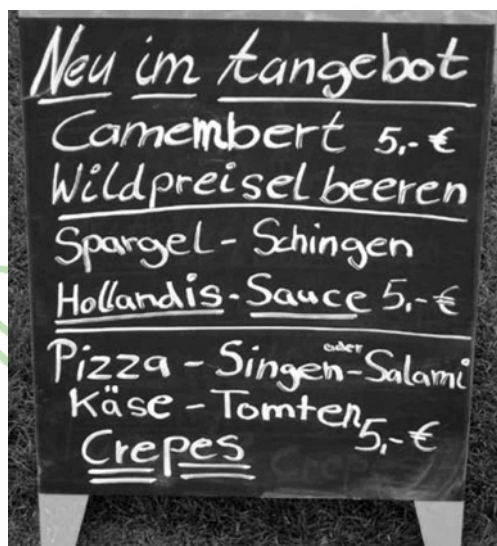 Neu im tangebot
Camembert 5,- €
Wildpreisel beeren
Spargel - Schingen
Hollandis - Sauce 5,- €
Pizza - Singen oder - Salami
Käse - Tomten 5,- €
Crepes